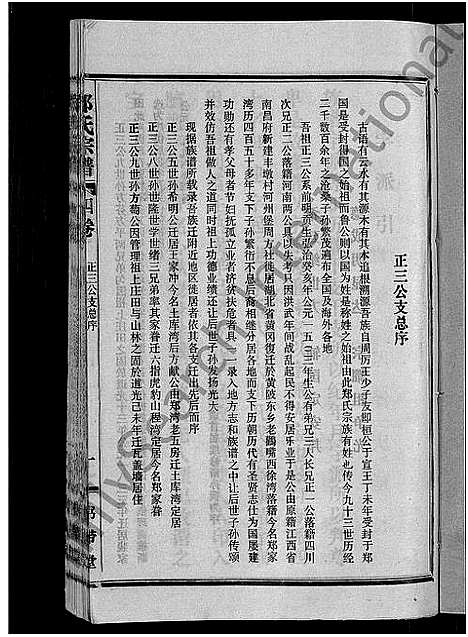 正三公支总序
古语有云水有其源木有其本追根溯源吾族自周厉王少子友即桓公于宣王丁未年受封于郑
国是受封得国之始祖而鲁公则以国为姓是称姓之始祖由此郑氏宗族有姓也传今九十三世历经
二千数百余年之沧桑子孙繁茂遍布全国及海外各地
吾祖正三公系前明孝宗弘治癸亥年公元一五〇三年生公有弟兄三人长兄正一公落籍四川
次兄正二公落籍河南两公具以失考只因洪武年间战乱起民不得安居乐业于是公由原籍江西省
南昌府新建丰墩村河州堡周方社徙居湖北省黄冈复迁於黄陂东乡老鹳嘴西徐湾落籍今名郑家
湾历四百五十多年矣支下子孙繁衍不息后裔相继分居各地而支下历朝历代有圣贤志仕为国屡建
功勋还有孝父母者节妇抚孤立业者济贫扶危者具一一录入地方志和族谱之中让后世子孙传颂
并效仿吾祖做人之道同时祖上功德业绩还让后世子孙发扬光大
现据族谱所载录吾族迁附近地区徒居者依其各支迁出先后而序
正三公五世孙希明公迁居王家冲今名土库湾后方献公由郑湾老五房迁土库湾定居
正三公八世孙世隆世学世绪三兄弟率其家眷迁六指虎豹山程湾定居今名郑家眷
正三公九世孙方蒍公因管理祖上庄田与山林之固於道光己未年迁瓦盖墙居住
氏宗谱
卷
正三公支总序
一